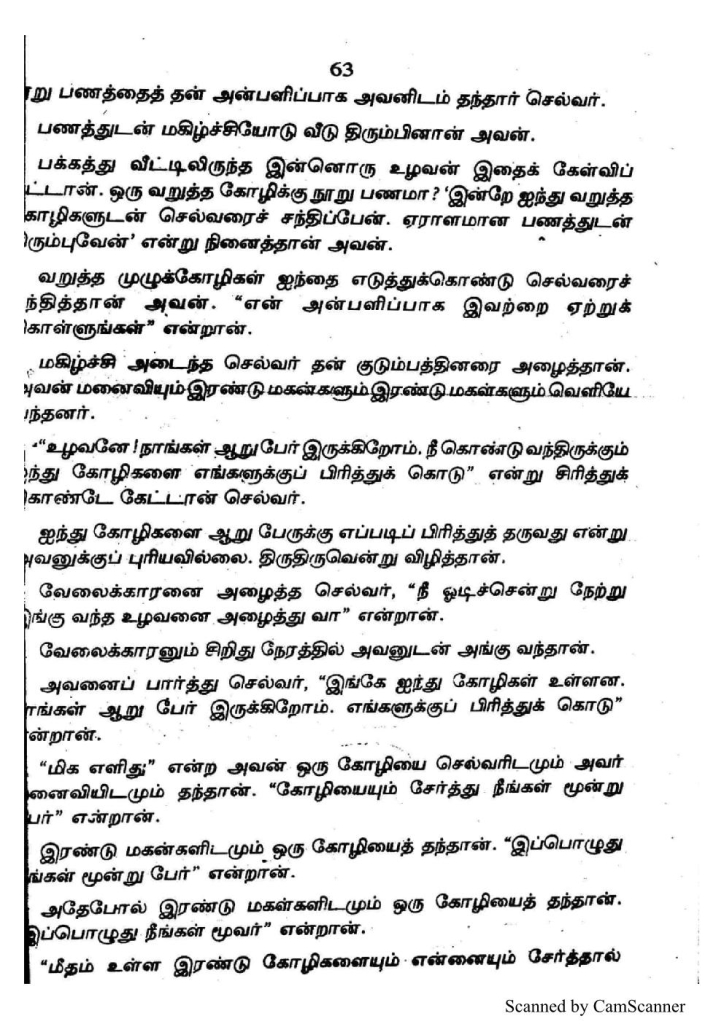 63
று பணத்தைத் தன் அன்பளிப்பாக அவனிடம் தந்தார் செல்வர்.
பணத்துடன் மகிழ்ச்சியோடு வீடு திரும்பினான் அவன்.
பக்கத்து வீட்டிலிருந்த இன்னொரு உழவன் இதைக் கேள்விப்
ட்டான். ஒரு வறுத்த கோழிக்கு நூறு பணமா? ‘இன்றே ஐந்து வறுத்த
காழிகளுடன் செல்வரைச் சந்திப்பேன். ஏராளமான பணத்துடன்
ரும்புவேன்’ என்று நினைத்தான் அவன்.
வறுத்த முழுக்கோழிகள் ஐந்தை எடுத்துக்கொண்டு செல்வரைச்
ந்தித்தான் அவன். “என் அன்பளிப்பாக இவற்றை ஏற்றுக்
காள்ளுங்கள்” என்றான்.
மகிழ்ச்சி அடைந்த செல்வர் தன் குடும்பத்தினரை அழைத்தான்.
வன் மனைவியும் இரண்டு மகன்களும் இரண்டு மகள்களும் வெளியே
ந்தனர்.
“உழவனே! நாங்கள் ஆறு பேர் இருக்கிறோம். நீ கொண்டு வந்திருக்கும்
ந்து கோழிகளை எங்களுக்குப் பிரித்துக் கொடு” என்று சிரித்துக்
காண்டே கேட்டான் செல்வர்.
ஐந்து கோழிகளை ஆறு பேருக்கு எப்படிப் பிரித்துத் தருவது என்று
வனுக்குப் புரியவில்லை. திருதிருவென்று விழித்தான்.
வேலைக்காரனை அழைத்த செல்வர், “நீ ஓடிச்சென்று நேற்று
ங்கு வந்த உழவனை அழைத்து வா” என்றான்.
வேலைக்காரனும் சிறிது நேரத்தில் அவனுடன் அங்கு வந்தான்.
அவனைப் பார்த்து செல்வர், “இங்கே ஐந்து கோழிகள் உள்ளன.
ாங்கள் ஆறு பேர் இருக்கிறோம். எங்களுக்குப் பிரித்துக் கொடு”
ன்றான்.
“மிக எளிது;” என்ற அவன் ஒரு கோழியை செல்வரிடமும் அவர்
னைவியிடமும் தந்தான். “கோழியையும் சேர்த்து நீங்கள் மூன்று
பர்” என்றான்.
இரண்டு மகன்களிடமும் ஒரு கோழியைத் தந்தான். “இப்பொழுது
ங்கள் மூன்று பேர்” என்றான்.
அதேபோல் இரண்டு மகள்களிடமும் ஒரு கோழியைத் தந்தான்.
இப்பொழுது நீங்கள் மூவர்” என்றான்.
“மீதம் உள்ள இரண்டு கோழிகளையும் என்னையும் சேர்த்தால்
Scanned by CamScanner